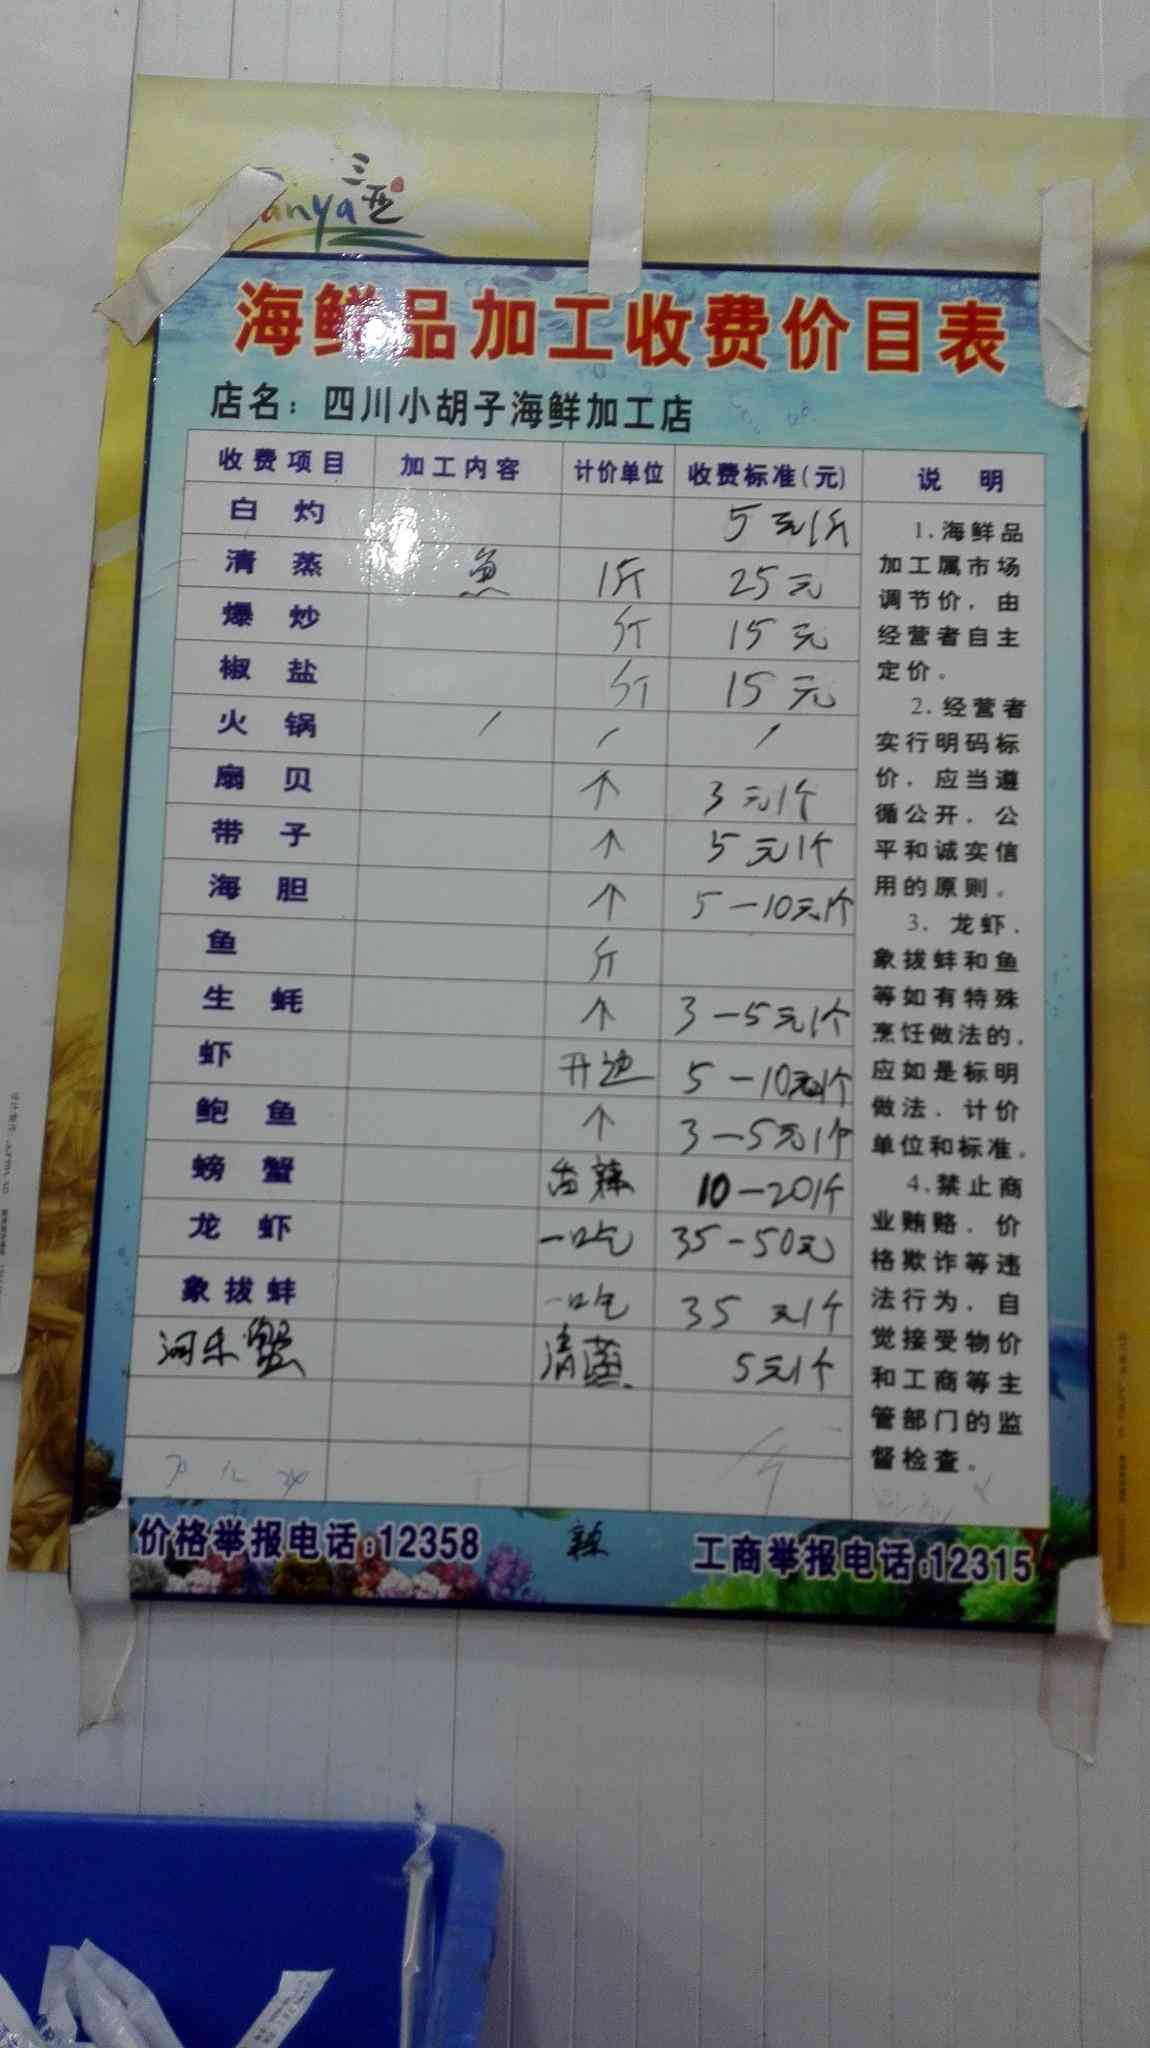 三亚
anya
海鲜品加工收费价目表
店名：四川小胡子海鲜加工店
收费项目 加工内容 计价单位 收费标准(元) 说 明
白灼 5元1斤
清蒸 鱼 1斤 25元
爆炒 斤 15元
椒盐 斤 15元
火锅 / / /
扇贝 个 3元1个
带子 个 5元1个
海胆 个 5-10元1个
鱼 斤
生蚝 个 3-5元1个
虾 开边 5-10元1个
鲍鱼 个 3-5元1个
螃蟹 香辣 10-20 1个
龙虾 一吃 35-50元
象拔蚌 一吃 35元1个
河乐蟹 清蒸 5元1个
1.海鲜品
加工属市场
调节价，由
经营者自主
定价。
2.经营者
实行明码标
价，应当遵
循公开、公
平和诚实信
用的原则。
3.龙虾、
象拔蚌和鱼
等如有特殊
烹饪做法的，
应如是标明
做法、计价
单位和标准。
4.禁止商
业贿赂、价
格欺诈等违
法行为，自
觉接受物价
和工商等主
管部门的监
督检查。
价格举报电话:12358 辣 工商举报电话:12315